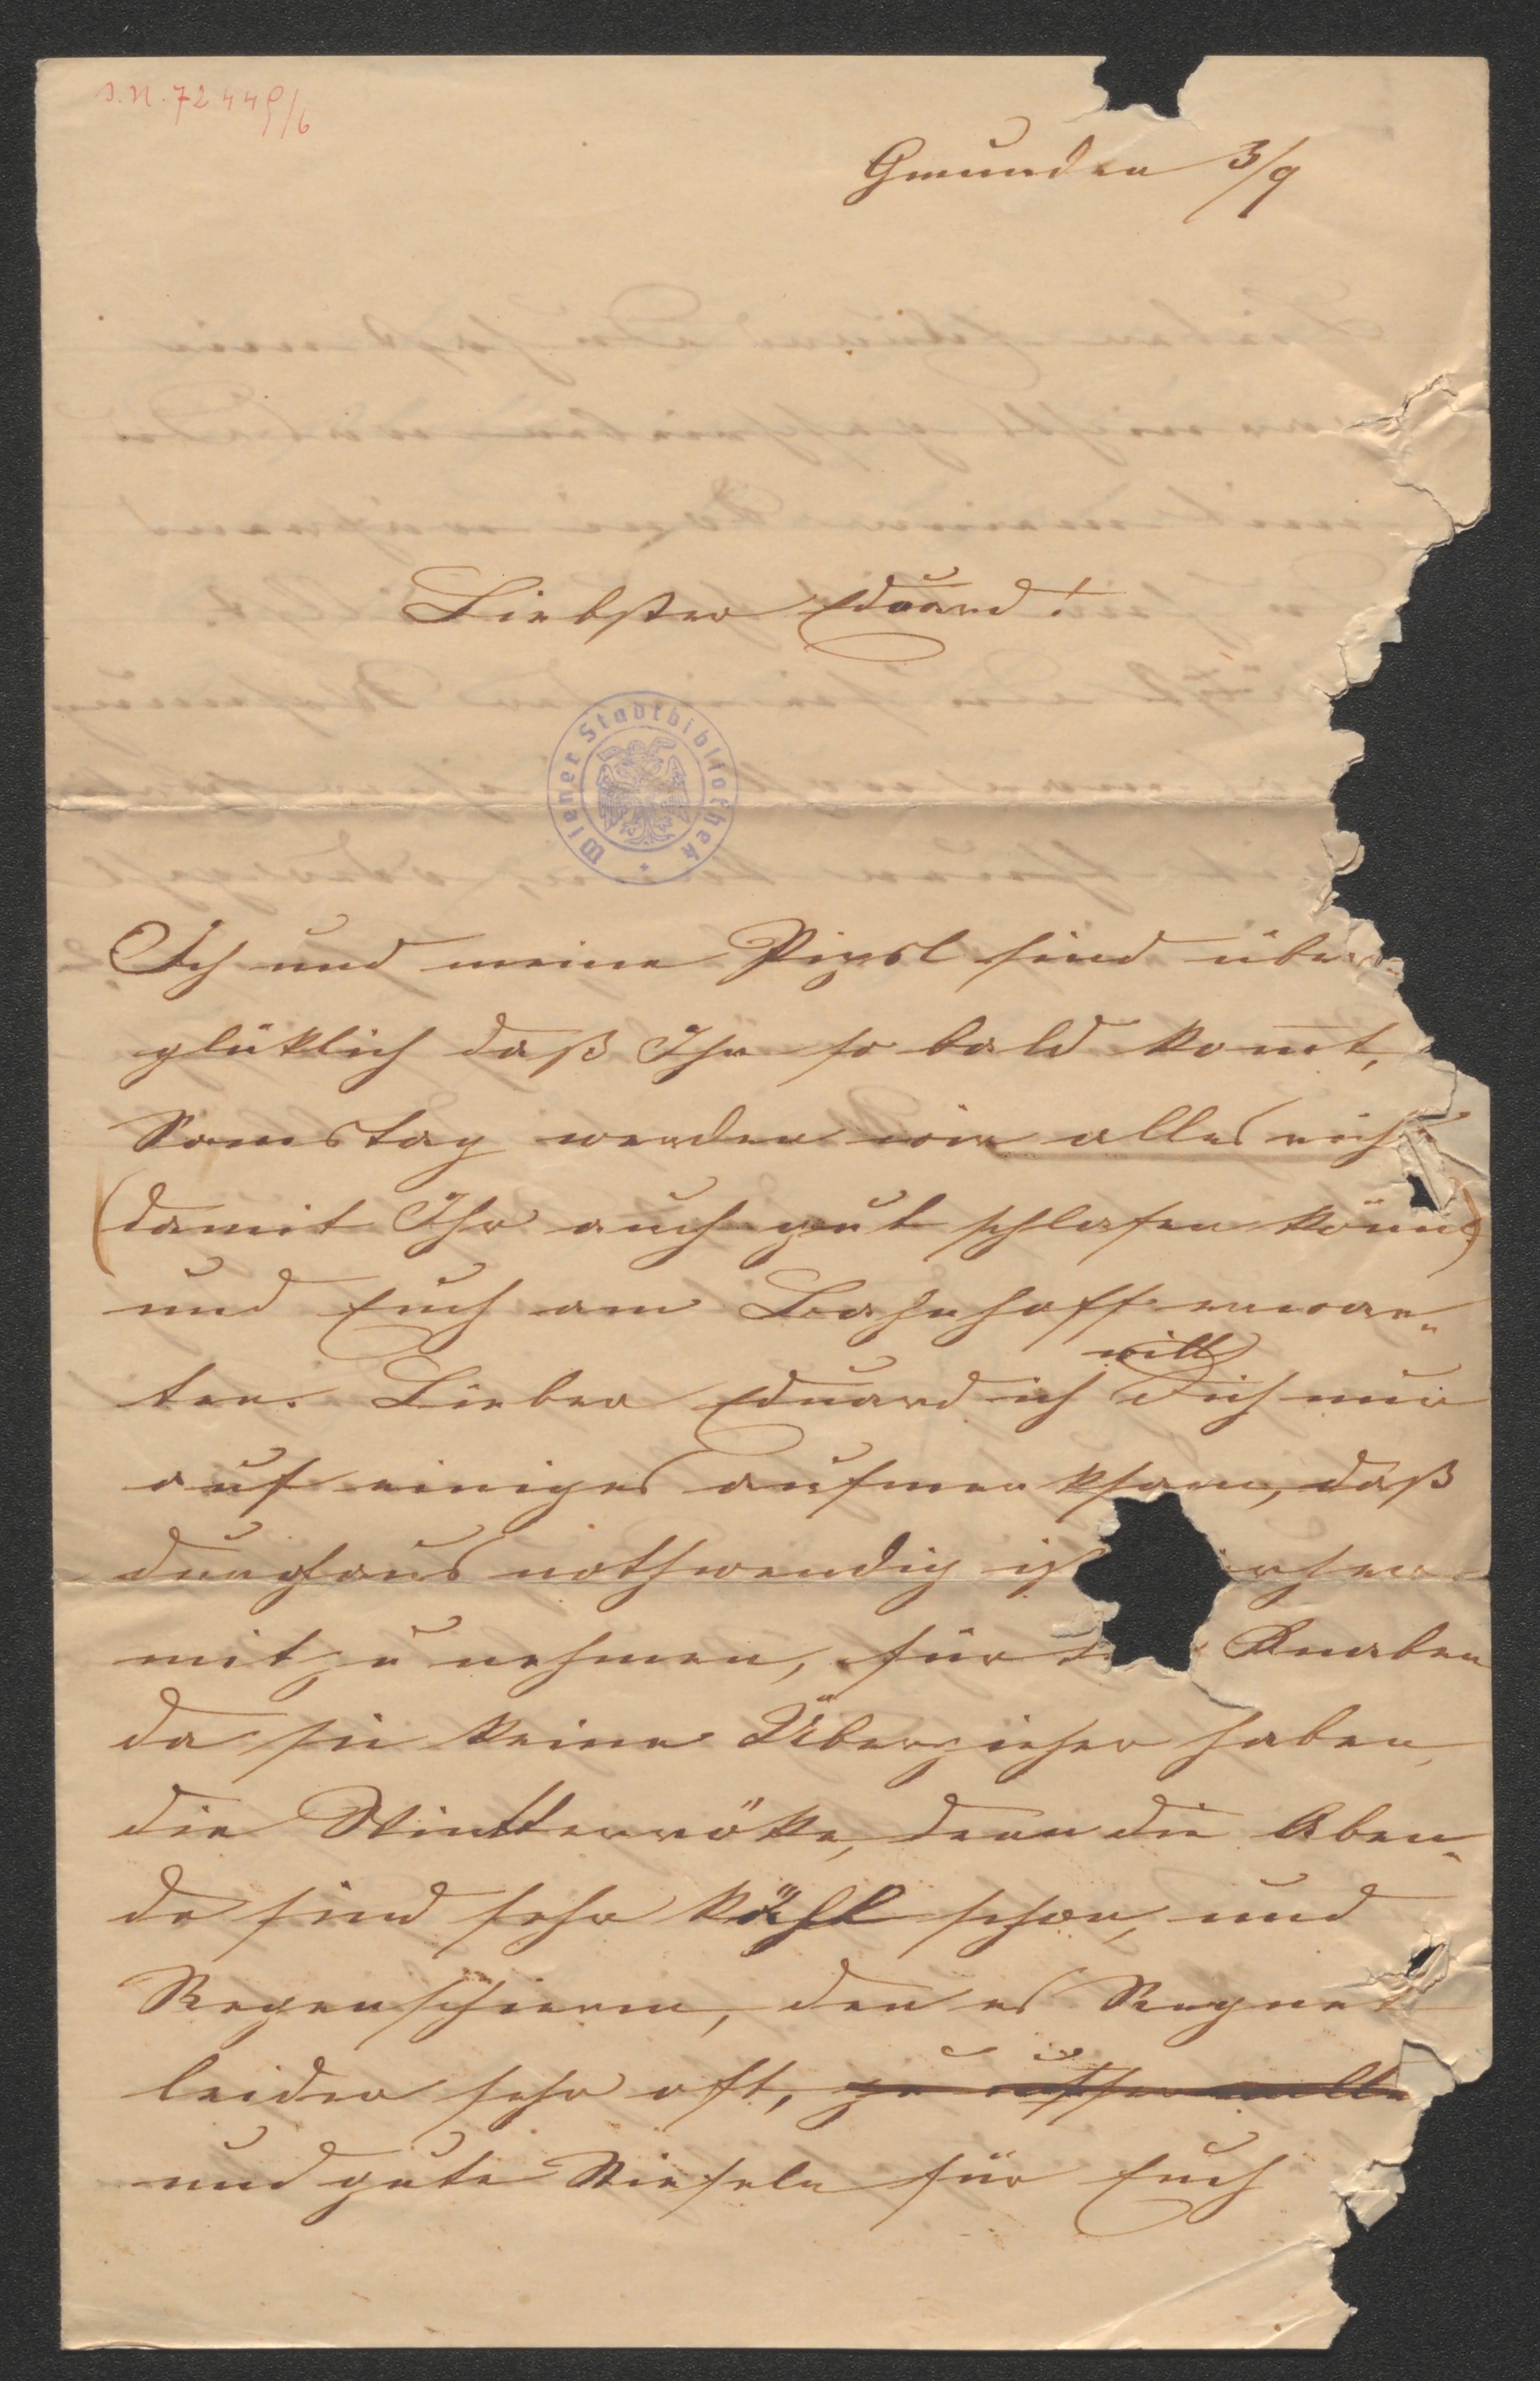 I.N. 72449/6
Gmunden 3/9
Liebster Eduard!
Wiener Stadtbibliothek
Ich und meine Pipsl sind über-
glüklich daß Ihr so bald kom̄t,
Samstag werden wir alles rich
(damit Ihr auch gut schlafen könnt)
und Euch am Bahnhoff erwar-
will
ten. Lieber Eduard ich Dich nur
auf einiges aufmerksam, daß
durchaus nothwendig ist
mitzunehmen, für Knaben
da sie keine Überzieher haben,
die Winterröke, denn die Aben-
de sind sehr kühl schon, und
Regenschierm, den es Regnet
leider sehr oft, zu
und gute Stiefeln für Euch